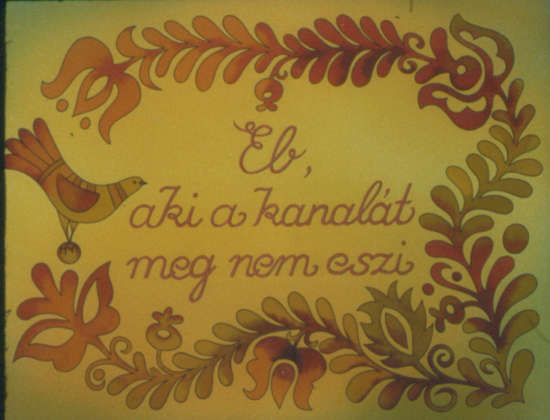 Eb,
aki a kanalát
meg nem eszi